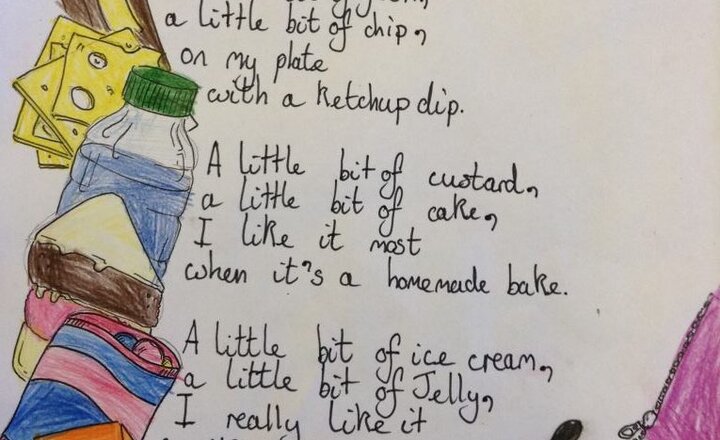 a little bit of chip,
on my plate
with a ketchup dip.
A little bit of custard,
a little bit of cake,
I like it most
when it's a homemade bake.
A little bit of ice cream,
a little bit of Jelly,
I really like it